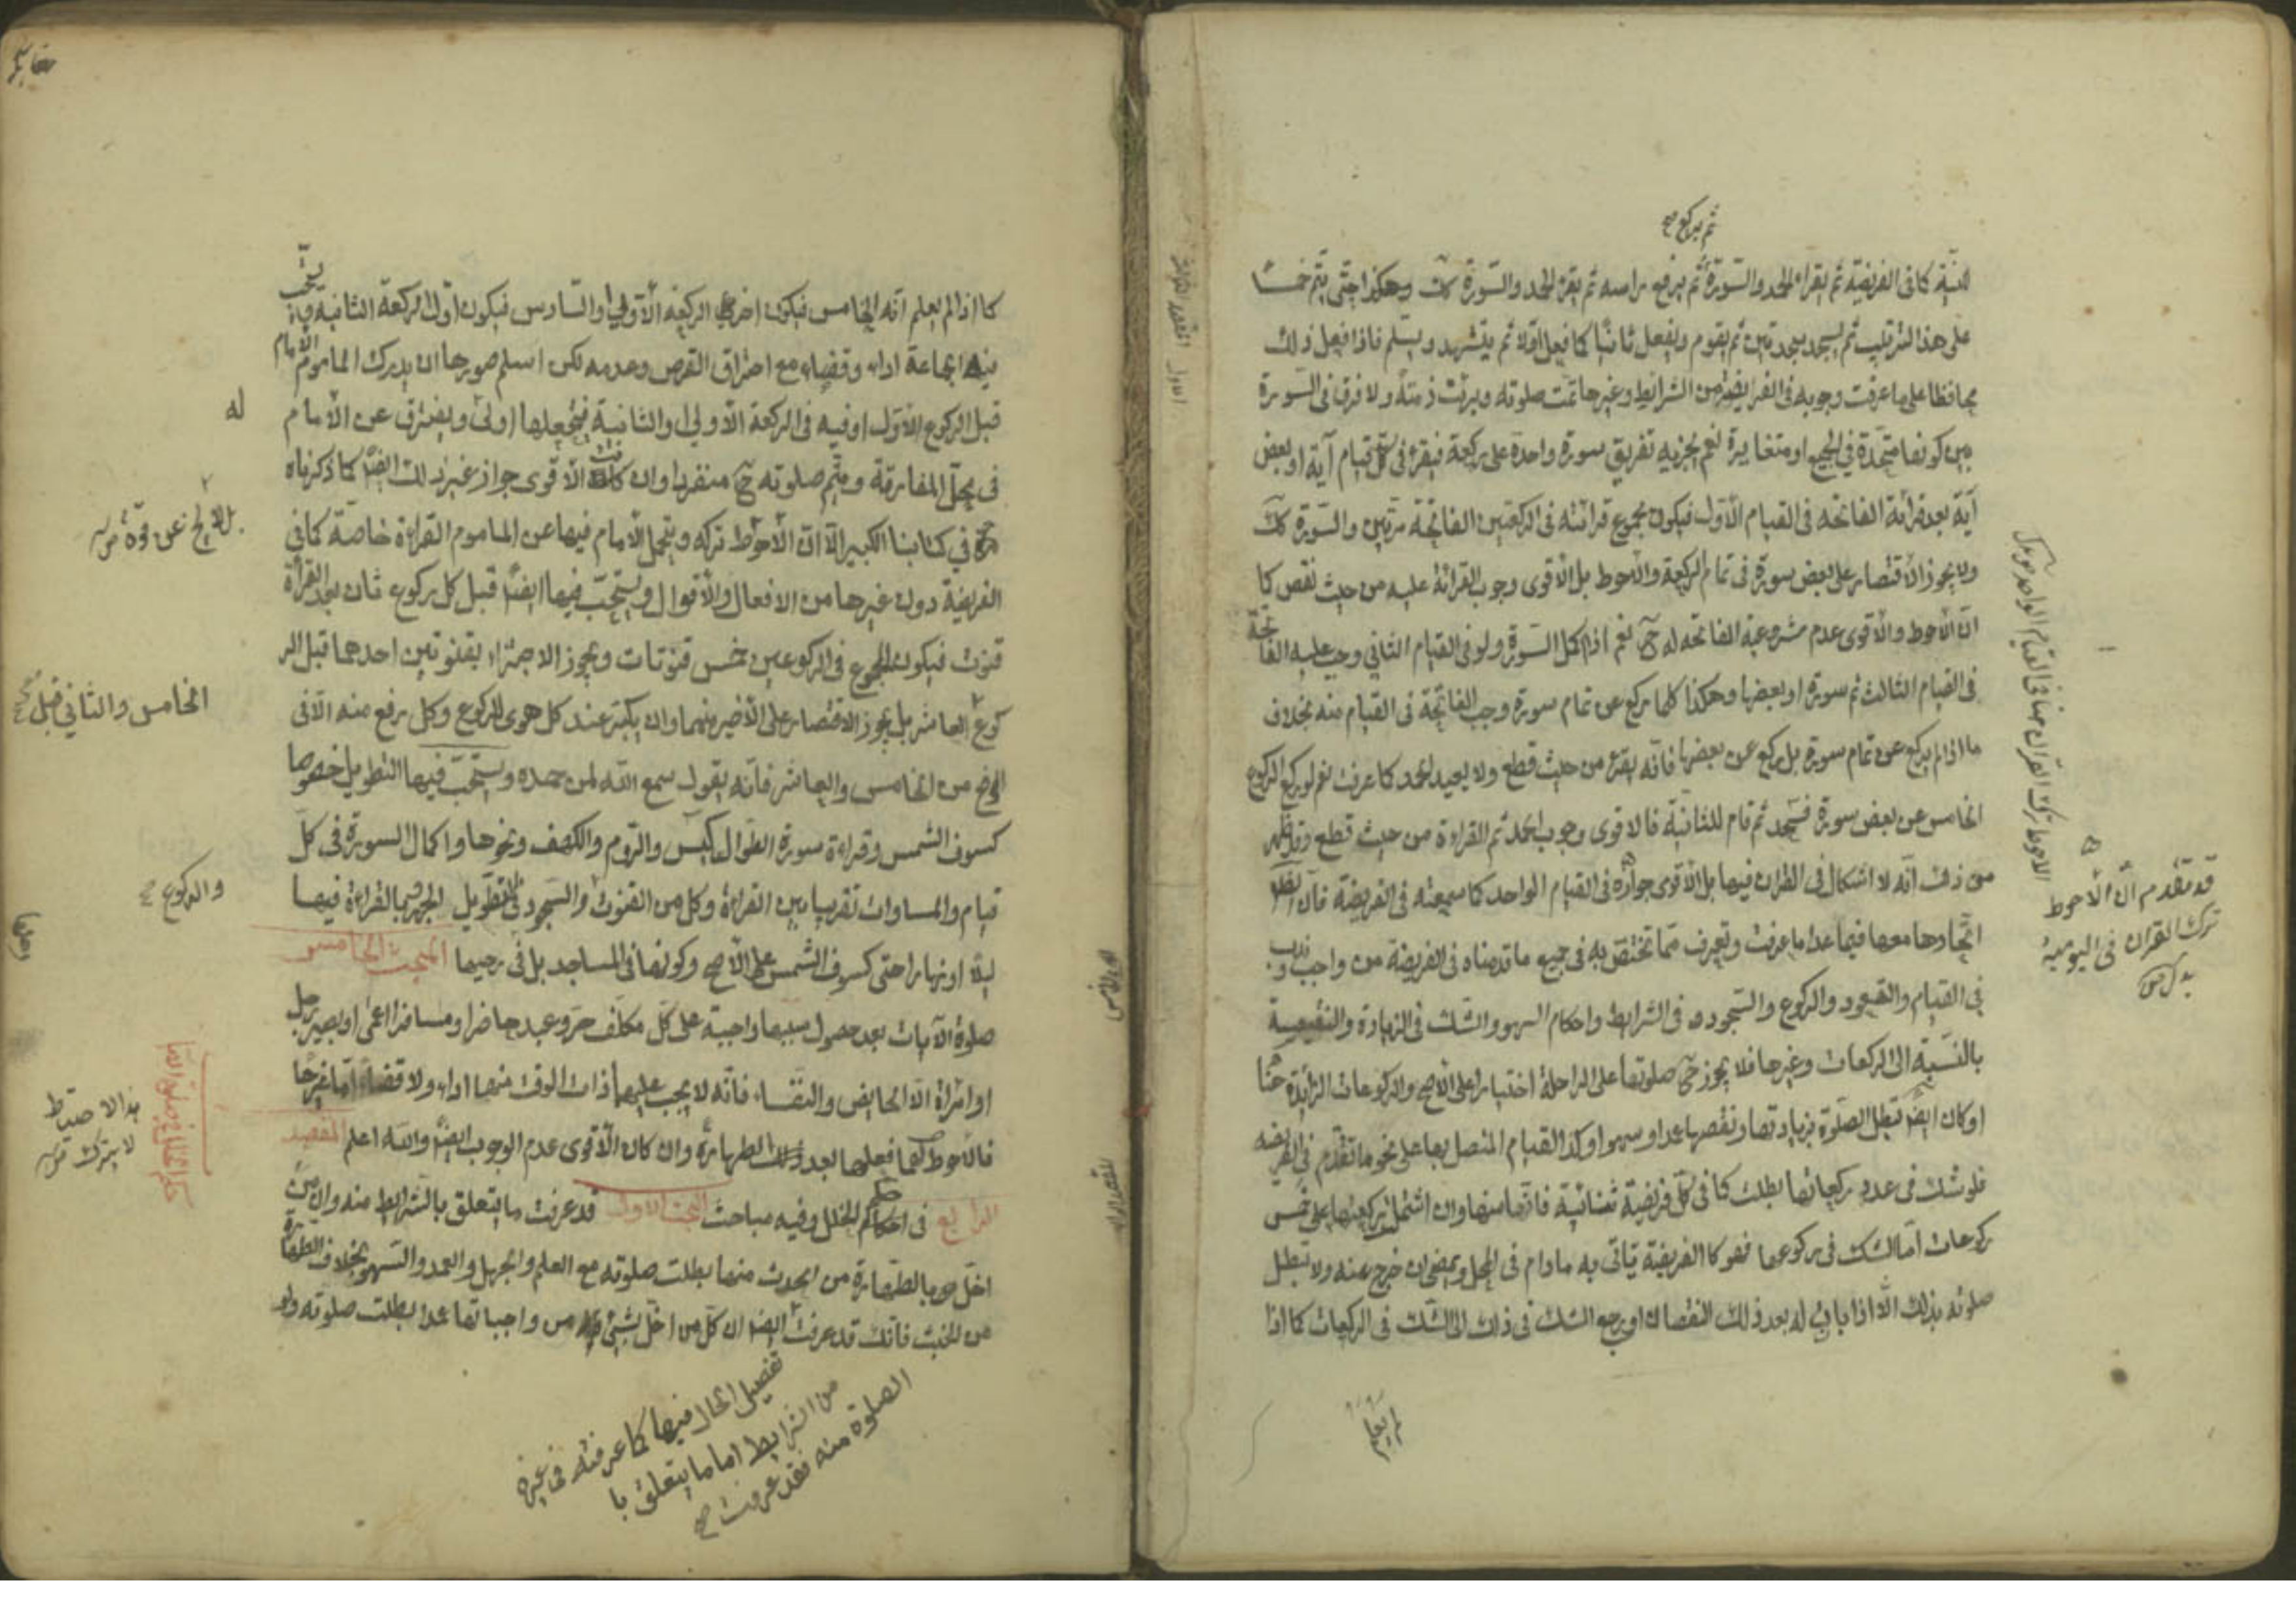 ثم يركع صح
للنية كما فى الفريضة ثم يقراء الحمد والسورة ثم يرفع راسه ثم يقرء الحمد والسورة كك وهكذا حتى يتم خمسًا
على هذا الترتيب ثم يسجد سجدتين ثم يقوم ويفعل ثانيًا كما فعل اوّلا ثم يتشهد ويسلم فاذا فعل ذلك
محافظا على ما عرفت وجوبه فى الفرايض من الشرايط وغيرها تمت صلوته وبرئت ذمته ولا فرق فى السورة
بين كونها متحدة في الجميع او متغايرة نعم يجزيه تفريق سورة واحدة على ركعة فيقرء فى كل قيام آية او بعض
آية بعد قرائة الفاتحه فى القيام الأول فيكون مجموع قرائته فى الركعتين الفاتحة مرتين والسورة كك
ولا يجوز الاقتصار على بعض سورة فى تمام الركعة والأحوط بل الأقوى وجوب القرائة عليه من حيث نقص كما
ان الأحوط والأقوى عدم مشروعية الفاتحه له ح نعم اذا اكمل السورة ولو فى القيام الثاني وجب عليه الفاتحة
فى القيام الثالث ثم سورة او بعضها وهكذا كلما ركع عن تمام سورة وجب الفاتحة فى القيام منه بخلاف
ما اذا لم يركع عن تمام سورة بل ركع عن بعضها فانه يقرء من حيث قطع ولا يعيد الحمد كما عرفت نعم لو ركع الركوع
الخامس عن بعض سورة فسجد ثم قام للثانية فالاقوى وجوب الحمد ثم القراءة من حيث قطع وقد ظهر
من ذلك انه لا اشكال فى القران فيها بل الأقوى جوازه فى القيام الواحد كما سمعته فى الفريضة فان
اتحادها معها فيما عدا ما عرفت وتعرف مما تختص به فى جميع ما قدمناه فى الفريضة من واجب وندب
فى القيام والقعود والركوع والسجود و فى الشرايط واحكام السهو والشك فى الزيادة والنقيصة
بالنسبة الى الركعات وغيرها فلا يجوز ح صلوتها على الراحلة اختيارا على الأصح والركوعات الزايدة هنا
اركان ايضًا تبطل الصلوة بزيادتها ونقصها عمدا وسهوا وكذا القيام المتصل بها على نحو ما تقدم فى الفريضه
فلو شك فى عدد ركعاتها بطلت كما فى كل فريضة ثنائية فانها منها وان اشتملت ركعتها على خمس
ركوعات اما الشك فى ركوعها فهو كالفريضة ياتى به مادام فى المحل ويمضى ان خرج عنه ولا تبطل
صلوته بذلك الّا اذا بان له بعد ذلك النقصان او رجع الشك فى ذلك الى الشك فى الركعات كما اذا
لم يعلم
الاحوط ترك القران هنا فى القيام الواحد
قد تقدم ان الأحوط
ترك القران فى اليومية
كما اذا لم يعلم انه الخامس فيكون اخر الركعة الأولى او السادس فيكون اول الركعة الثانية ويستحب
فيه الجماعة اداء وقضاء مع احتراق القرص وعدمه لكن اسلم صورها ان يدرك الماموم الامام
قبل الركوع الأول او فيه فى الركعة الأولى او الثانية فيجعلها اولى ويفترق عن الأمام
له
فى محل المفارقة ويتم صلوته ح منفردا وان كان الأقوى جواز غير ذلك ايضًا كما ذكرناه
فى كتابنا الكبير الا ان الأحوط تركه ويتحمل الأمام فيها عن الماموم القراءة خاصة كما في
بل لا يخ عن قوة
الفريضة دون غيرها من الافعال والأقوال ويستحب فيها ايضًا قبل كل ركوع ثان بعد القراءة
قنوت فيكون المجموع فى الركوعين خمس قنوتات ويجوز الاجتزاء بقنوتين احدهما قبل الر
الخامس والثاني قبل
كوع العاشر بل يجوز الاقتصار على الأخير منهما وان يكبر عند كل هوى للركوع وكل رفع منه الا فى
الرفع من الخامس والعاشر فانه يقول سمع الله لمن حمده ويستحب فيها التطويل خصوصا
كسوف الشمس وقراءة سورة الطوال كيس والروم والكهف ونحوها واكمال السورة فى كل
قيام والمساوات تقريبا بين القراءة وكل من القنوت والسجود في التطويل والجهر بالقراءة فيها
والركوع صح
ليلا او نهارا حتى كسوف الشمس على الأصح وكونها فى المساجد بل فى رحبها المبحث الخامس
صلوة الآيات بعد حصول سببها واجبة على كل مكلف حر وعبد حاضر او مسافر اعمى او بصير رجل
او امراة الا الحايض والنفساء فانه لا يجب عليهما ذات الوقت منها اداء ولا قضاء اما غيرها
هذا الاحتياط
لا يترك
فالأحوط لهما فعلها بعد الطهارة وان كان الأقوى عدم الوجوب ايضًا والله اعلم المقصد
الرابع فى احكام الخلل وفيه مباحث المبحث الاول قد عرفت ما يتعلق بالشرايط منه وان من
اخل بالطهارة من الحدث منها بطلت صلوته مع العلم والجهل والعمد والسهو بخلاف الطهارة
من الخبث فانك قد عرفت ايضا ان كل من اخل بشئ من واجباتها عمدا بطلت صلوته ولو
تفصيل الحال فيها كما عرفته فى غيره
من الشرايط اما ما يتعلق با
الصلوة منه فقد عرفت صح